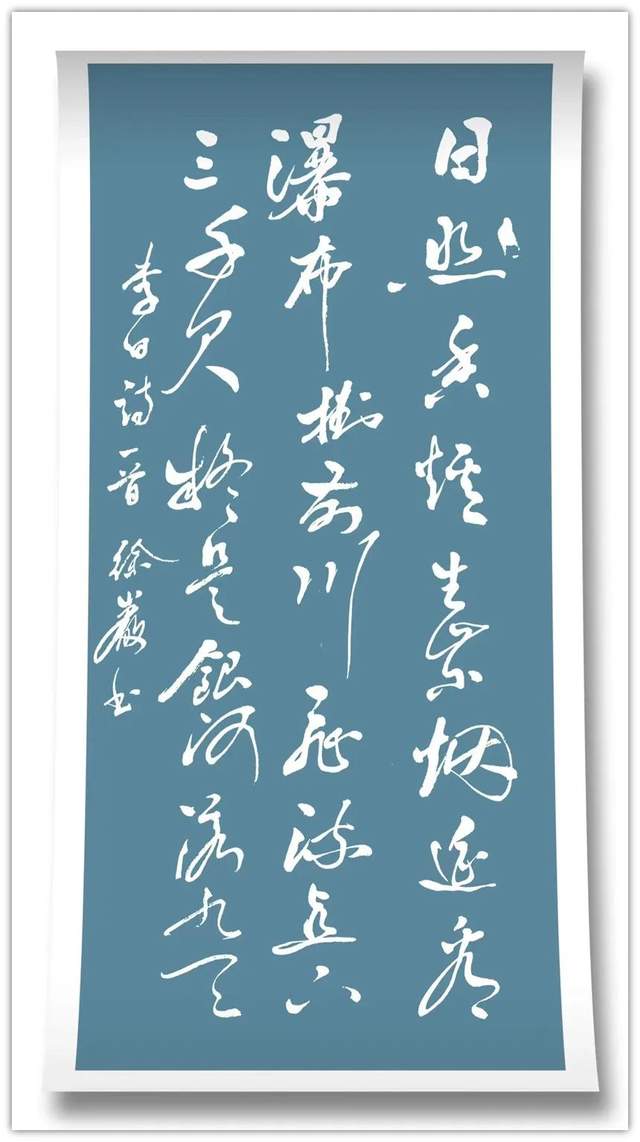 日照香爐生紫烟遥看
瀑布掛前川飛流直下
三千尺疑是銀河落九天
李白詩一首 徐書